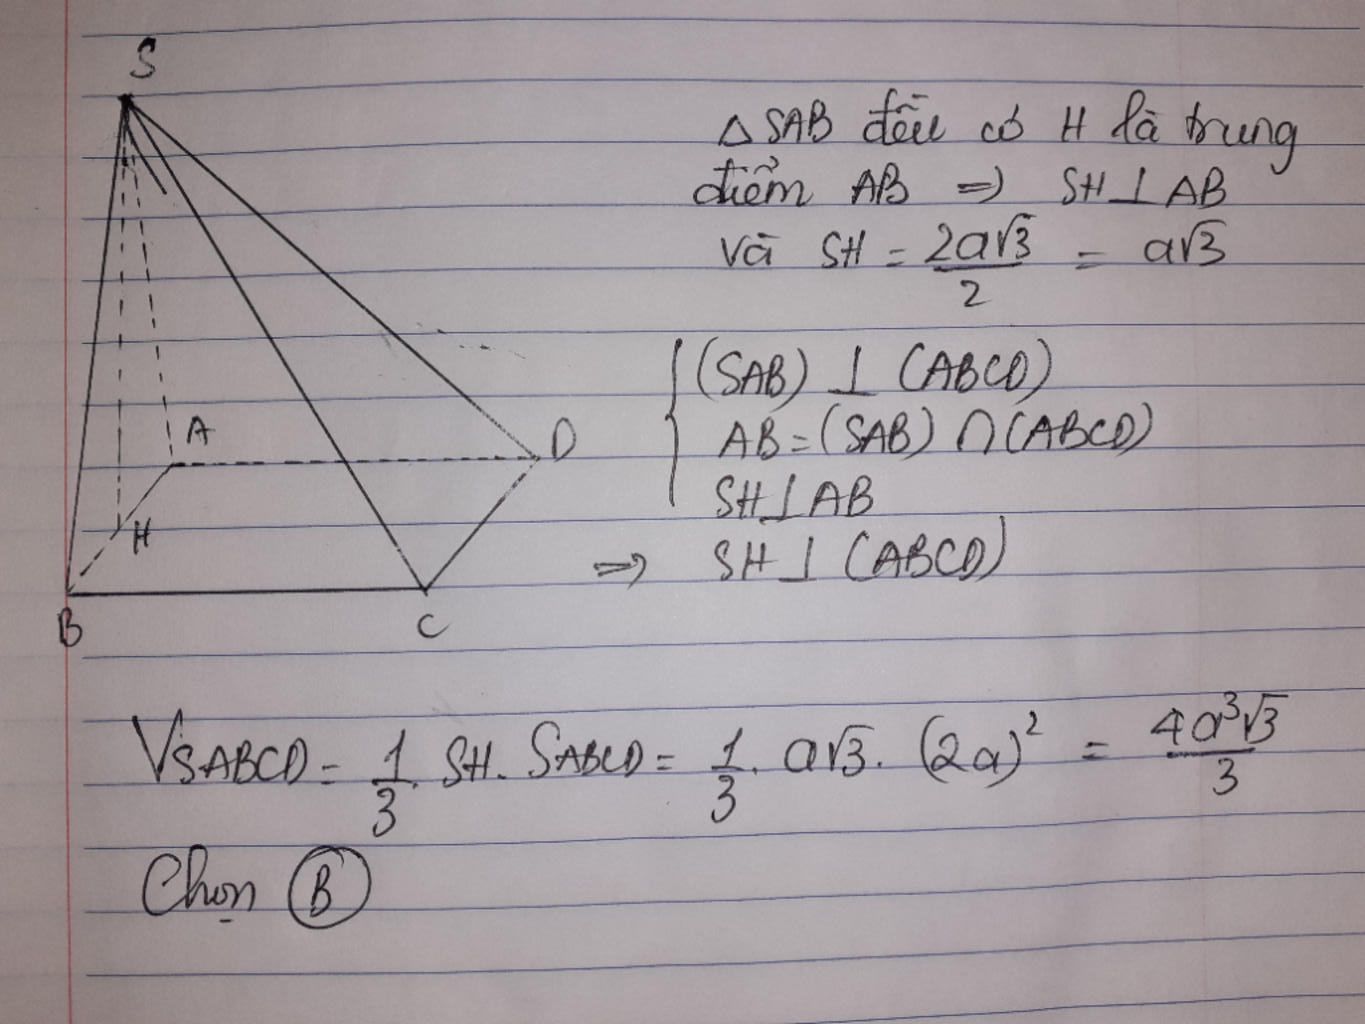 S
△SAB đều có H là trung
điểm AB => SH ⊥ AB
và SH = 2a√3/2 = a√3
(SAB) ⊥ (ABCD)
A
D
AB = (SAB) ∩ (ABCD)
SH ⊥ AB
H
=> SH ⊥ (ABCD)
B
C
VSABCD = 1/3. SH. SABCD = 1/3. a√3. (2a)² = 4a³√3/3
Chọn B